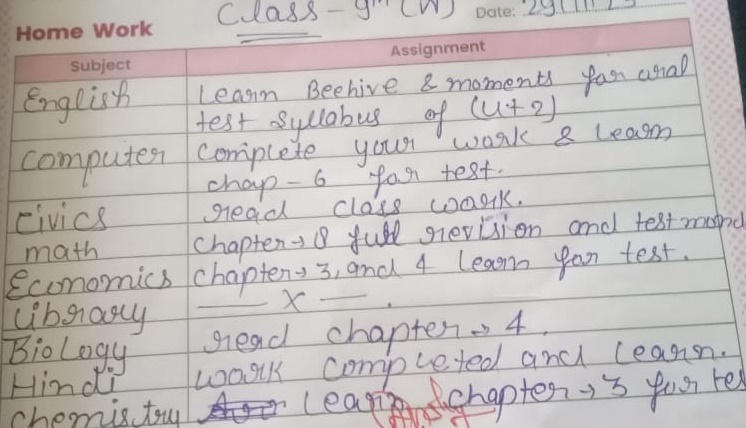 Class - 9th (W) Date: 29/11/23
Home Work
Subject Assignment
English Learn Beehive & moments for oral
test syllabus of (UT 2)
Computer Complete your work & learn
chap - 6 for test.
Civics read class work.
math chapter → 8 full revision and test mond
Economics chapter → 3, and 4 learn for test.
Library — x — .
Biology read chapter → 4.
Hindi work completed and learn.
Chemistry Learn chapter → 3 for tes